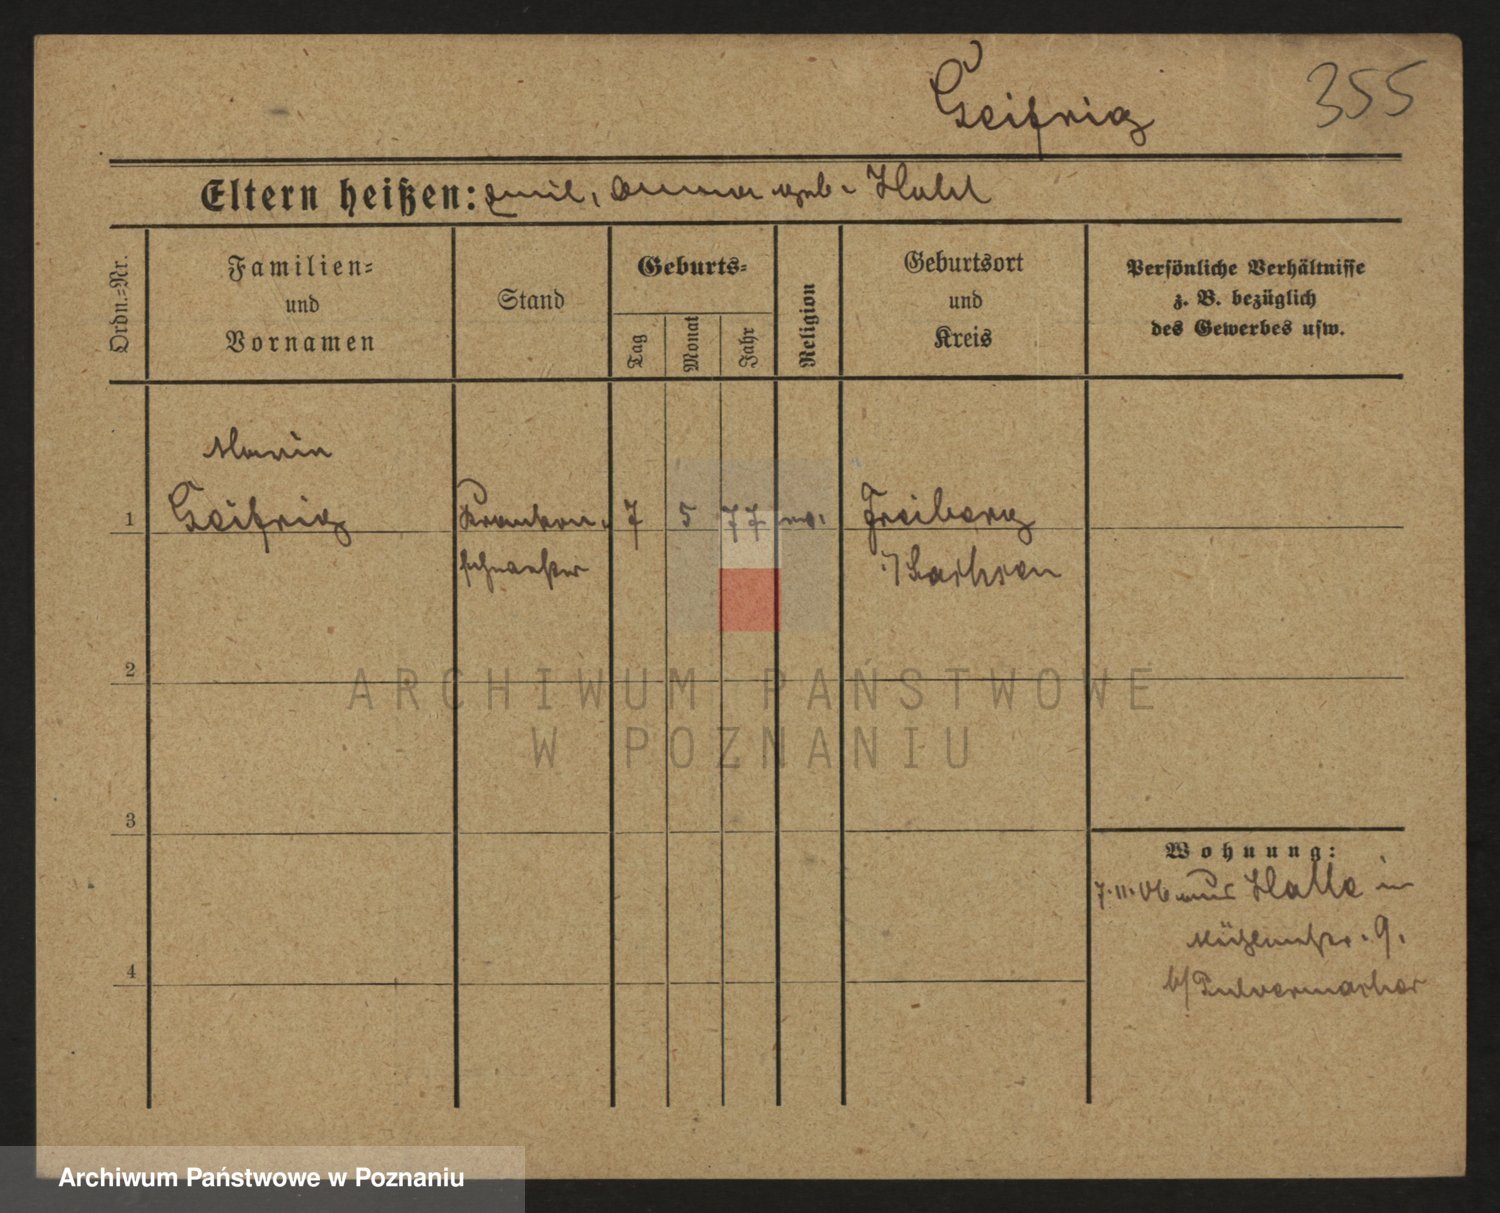 Geifrig
355
Eltern heißen: Emil, Anna geb. Hahl
Ordn.-Nr.
Familien-
und
Vornamen
Stand
Geburts-
Tag
Monat
Jahr
Religion
Geburtsort
und
Kreis
Persönliche Verhältnisse
z. B. bezüglich
des Gewerbes usw.
Marie
1 Geifrig Kranken- 7 5 77 ev. Freiberg
schwester i/Sachsen
2
3
4
Wohnung:
7.11.06 aus Halle in
Mühlenstr. 9.
b/ Pulvermacher
ARCHIWUM PAŃSTWOWE
W POZNANIU
Archiwum Państwowe w Poznaniu